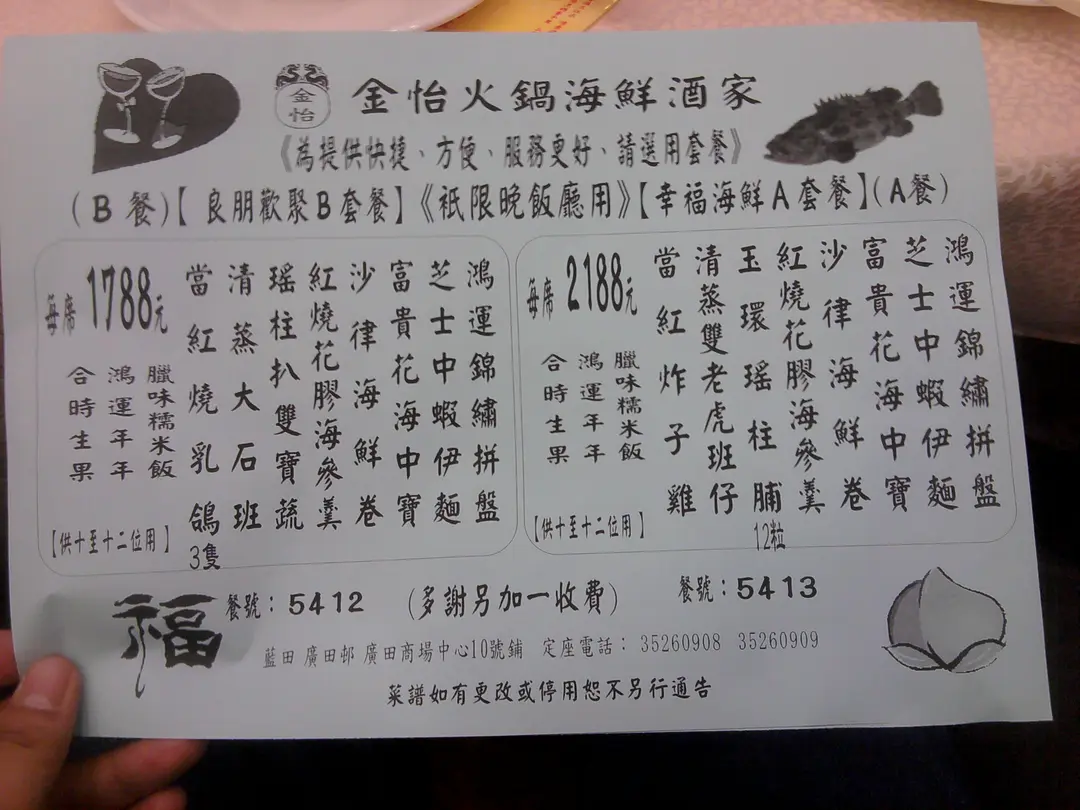 金怡
金怡火鍋海鮮酒家
《為提供快捷、方便、服務更好、請選用套餐》
(B餐)【良朋歡聚B套餐】《衹限晚飯廳用》【幸福海鮮A套餐】(A餐)
鴻運錦繡拼盤
芝士中蝦伊麵
富貴花海中寶
沙律海鮮卷
紅燒花膠海參羹
玉環瑤柱脯
12粒
清蒸雙老虎班仔
當紅炸子雞
每席2188元
臘味糯米飯
鴻運年年
合時生果
【供十至十二位用】
鴻運錦繡拼盤
芝士中蝦伊麵
富貴花海中寶
沙律海鮮卷
紅燒花膠海參羹
瑤柱扒雙寶蔬
清蒸大石班
當紅燒乳鴿
3隻
每席1788元
臘味糯米飯
鴻運年年
合時生果
【供十至十二位用】
福
餐號：5412 (多謝另加一收費) 餐號：5413
藍田 廣田邨 廣田商場中心10號鋪 定座電話： 35260908 35260909
菜譜如有更改或停用恕不另行通告